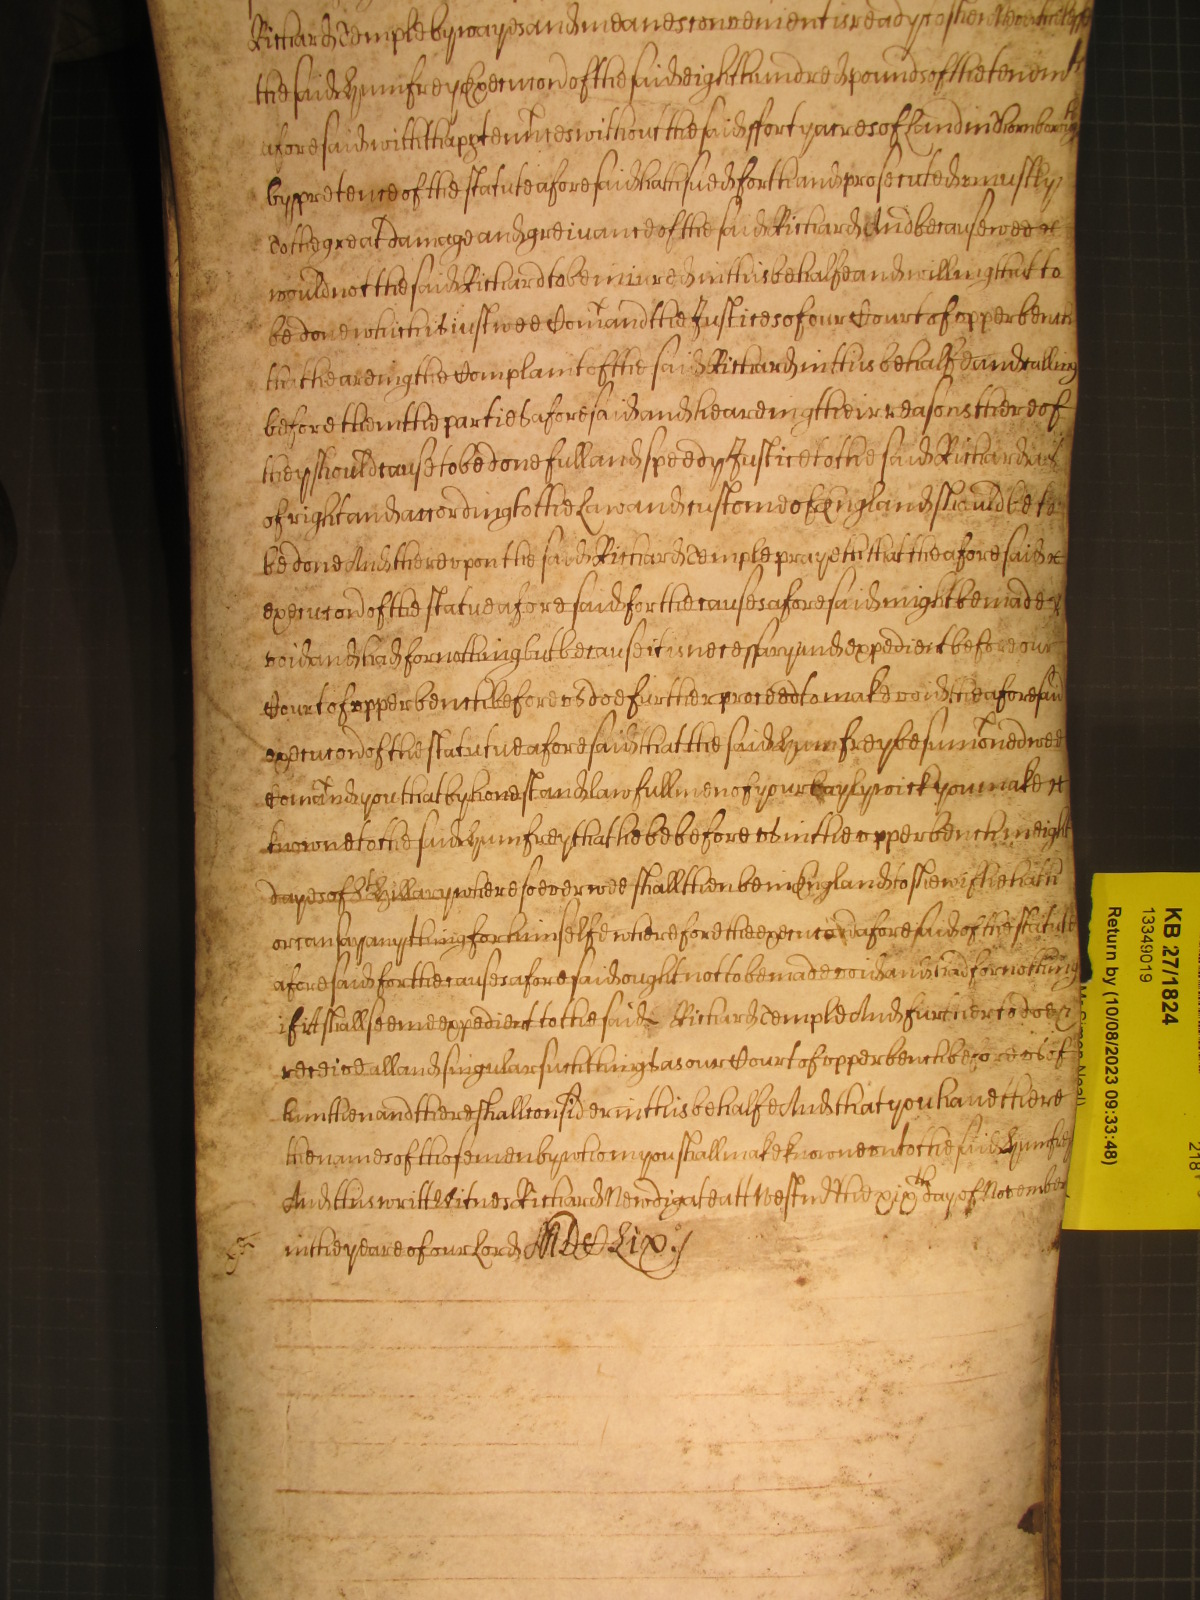 Richard Temple by wayes and meanes convenient is ready to shew
the said Humfrey Execucon of the said eight hundred pounds of the tenemts
aforesaid with thapptenñces without the said fforty acres of Land in Thornborough
by pretence of the statute aforesaid hath sued forth and prosecuted uniustly
to the great damage and greivance of the said Richard And because wee
would not the said Richard to be iniured in this behalfe and willing that to
be done which is iust wee Comãnd the Justices of our Court of vpper bench
that heareing the Complaint of the said Richard in this behalfe and calling
before them the parties aforesaid and heareing their reasons thereof
they should cause to be done full and speedy Justice to the said Richard as
of right and according to the Law and custome of England should be to
be done And therevpon the said Richard Temple prayeth that the aforesaid
execucon of the statue aforesaid for the causes aforesaid might be made
void and had for nothing but because it is necessary and expedient before our
Court of vpper bench before vs doe further proceed to make void the aforesaid
execucon of the statutue aforesaid that the said Humfrey be sumõned wee
Comãnd you that by honest and lawfull men of your baylywick you make
knowne to the said Humfrey that he be before vs in the vpper bench in eight
dayes of St Hillary wheresoever wee shall then be in England to shew if he hath
or can say any thing for himselfe wherefore the execucon aforesaid of the statute
aforesaid for the causes aforesaid ought not to be made void and had for nothing
if itt shall seeme expedient to the said Richard Temple And further to doe &
receive all and singular such things as our Court of vpper bench before vs of
him then and there shall consider in this behalfe And that you have there
the names of those men by whom you shall make knowne vnto the said Humfrey
And this writt Witnes Richard Newdigate att Westm̃ the xixth day of November
in the yeare of our Lord MDCLix:
KB 27/1824
13349019
Return by (10/08/2023 09:33:48)